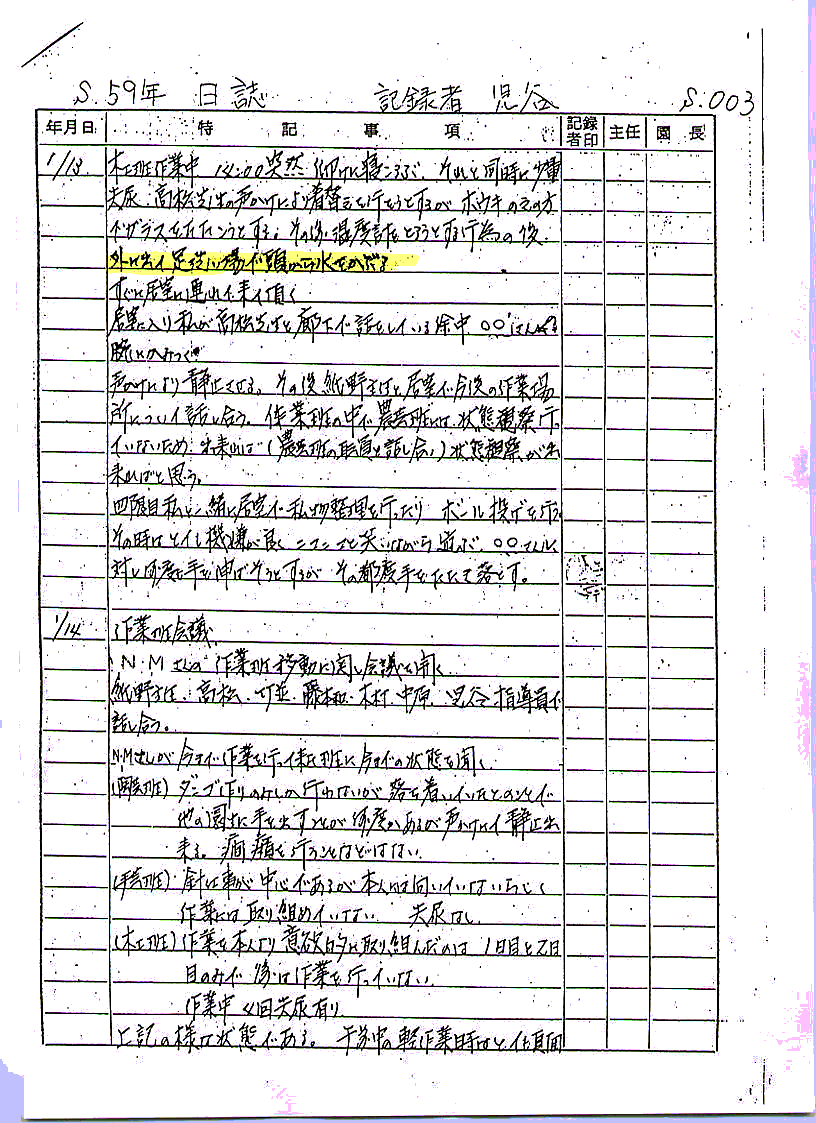 S.59年 日誌 記録者 児谷 S.003
年月日 特記事項 記録者印 主任 園長
1/13 木工班作業中 14:00突然 仰向けに寝ころぶ、それと同時に少量
失尿、高松先生の声かけにより着替えを行なうとするが ホウキのえの方
でガラスをたたこうとする。その後 温度計をとろうとする行為の後、
外に出て足洗い場で頭から水をかぶる
すぐに居室に連れて来て頂く
居室に入り私が高松先生と廊下で話をしている途中 〇〇さんの
腕にかみつく
声かけにより静止させる。その後 紙野主任と居室で今後の作業場
所について話し合う。作業班の中で農芸班には状態観察行
ていないため 出来れば(農芸班の職員と話し合い)状態観察が出
来ればと思う。
四限目私と一緒に居室で私物整理を行ったり ボール投げを行う
その時はとても機嫌が良く ニコニコと笑いながら遊ぶ、〇〇さんに
対し何度も手を伸ばそうとするが その都度手をたたて落とす。
1/14 作業班会議
N・Mさんの 作業班移動に関し会議を開く
紙野主任、高松、 藤本 、木村、中原、児谷指導員で
話し合う。
N・Mさんが今まで作業を行って来た班に今までの状態を聞く
ダンゴ作りのみしか行わないが 落ち着いていたとのことで
他の園生に手を出すことが何度かあるが声かけにて静止出
来る。癇癪を行うことなどはない
(手芸班) 針仕事が中心であるが本人には向いていないらしく
作業には取り組めていない 失尿なし
(木工班) 作業を本人より意欲的に取り組んだのは 1日目と2日
目のみで 後は作業を行っていない
作業中 回失尿有り
上記の様な状態である。 午前中の軽作業時はと